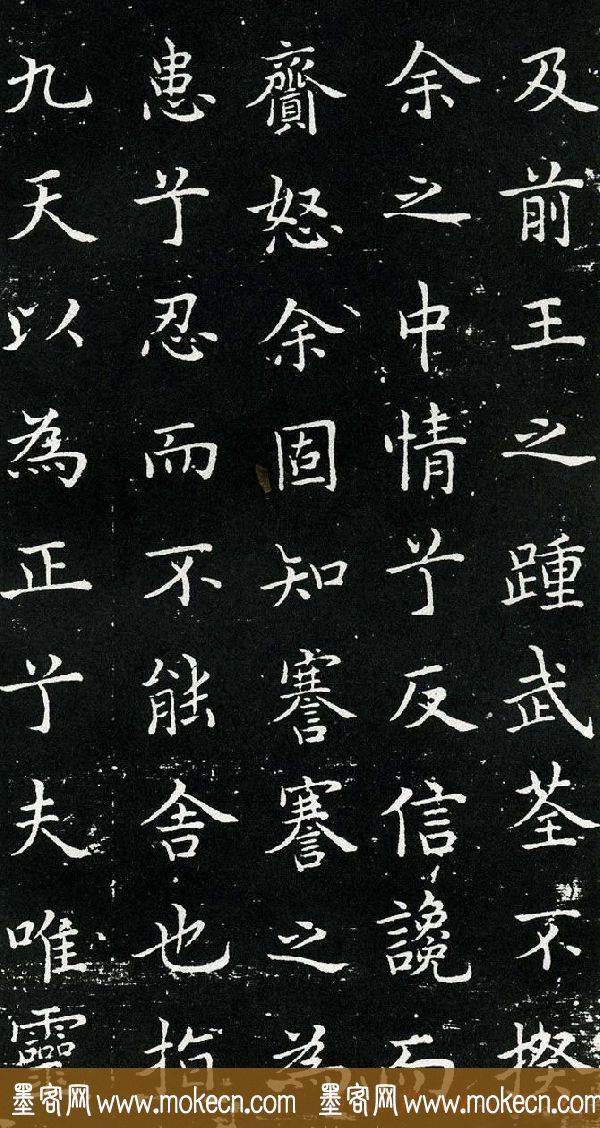 及前王之踵武荃不揆
余之中情兮反信讒而
齌怒余固知謇謇之為
患兮忍而不能舍也指
九天以為正兮夫唯靈
墨客网 www.mokecn.com 墨客网 www.mokecn.com